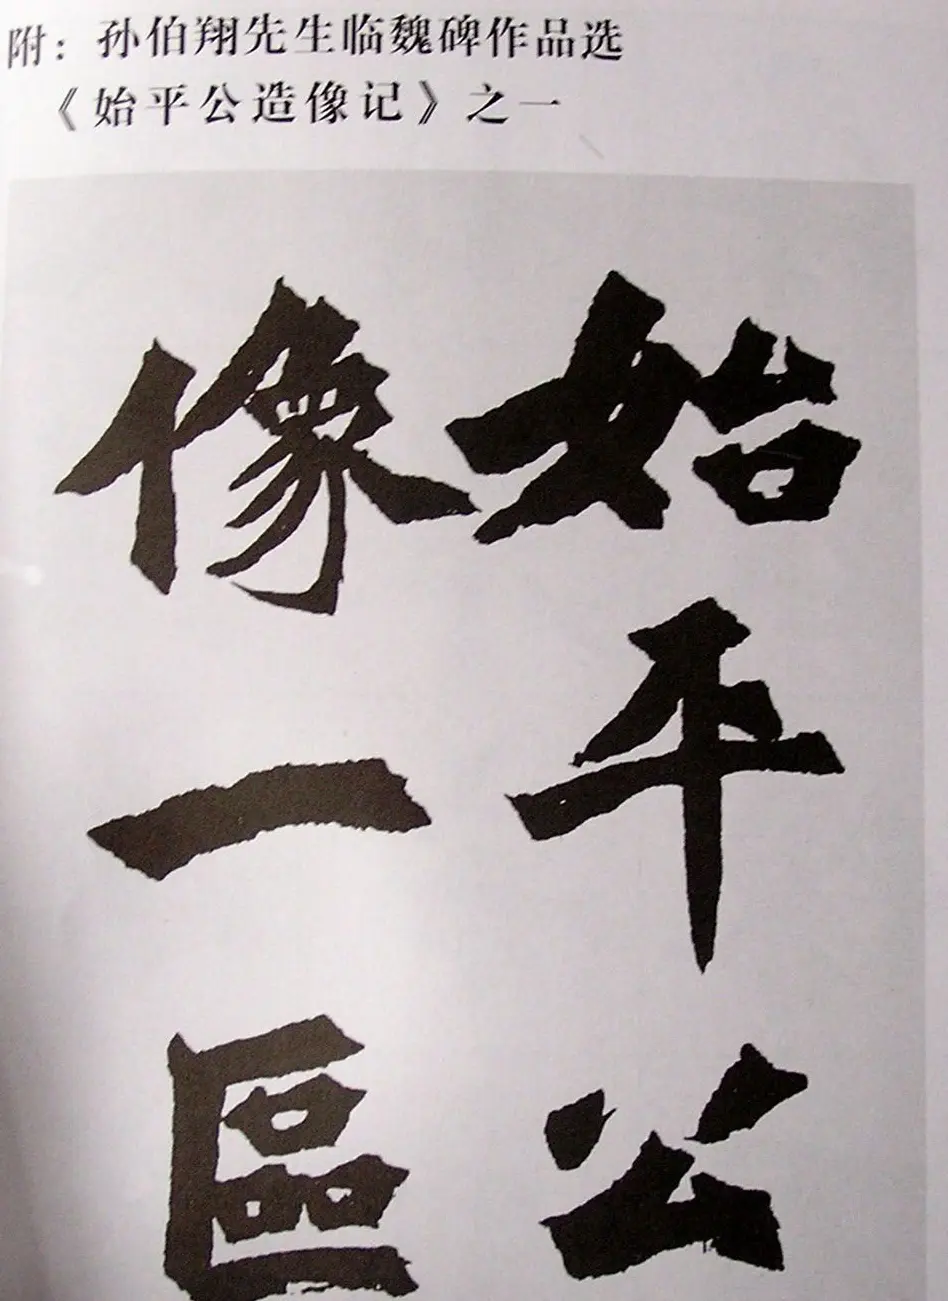 附：孙伯翔先生临魏碑作品选
《始平公造像记》之一
始平公
像一區